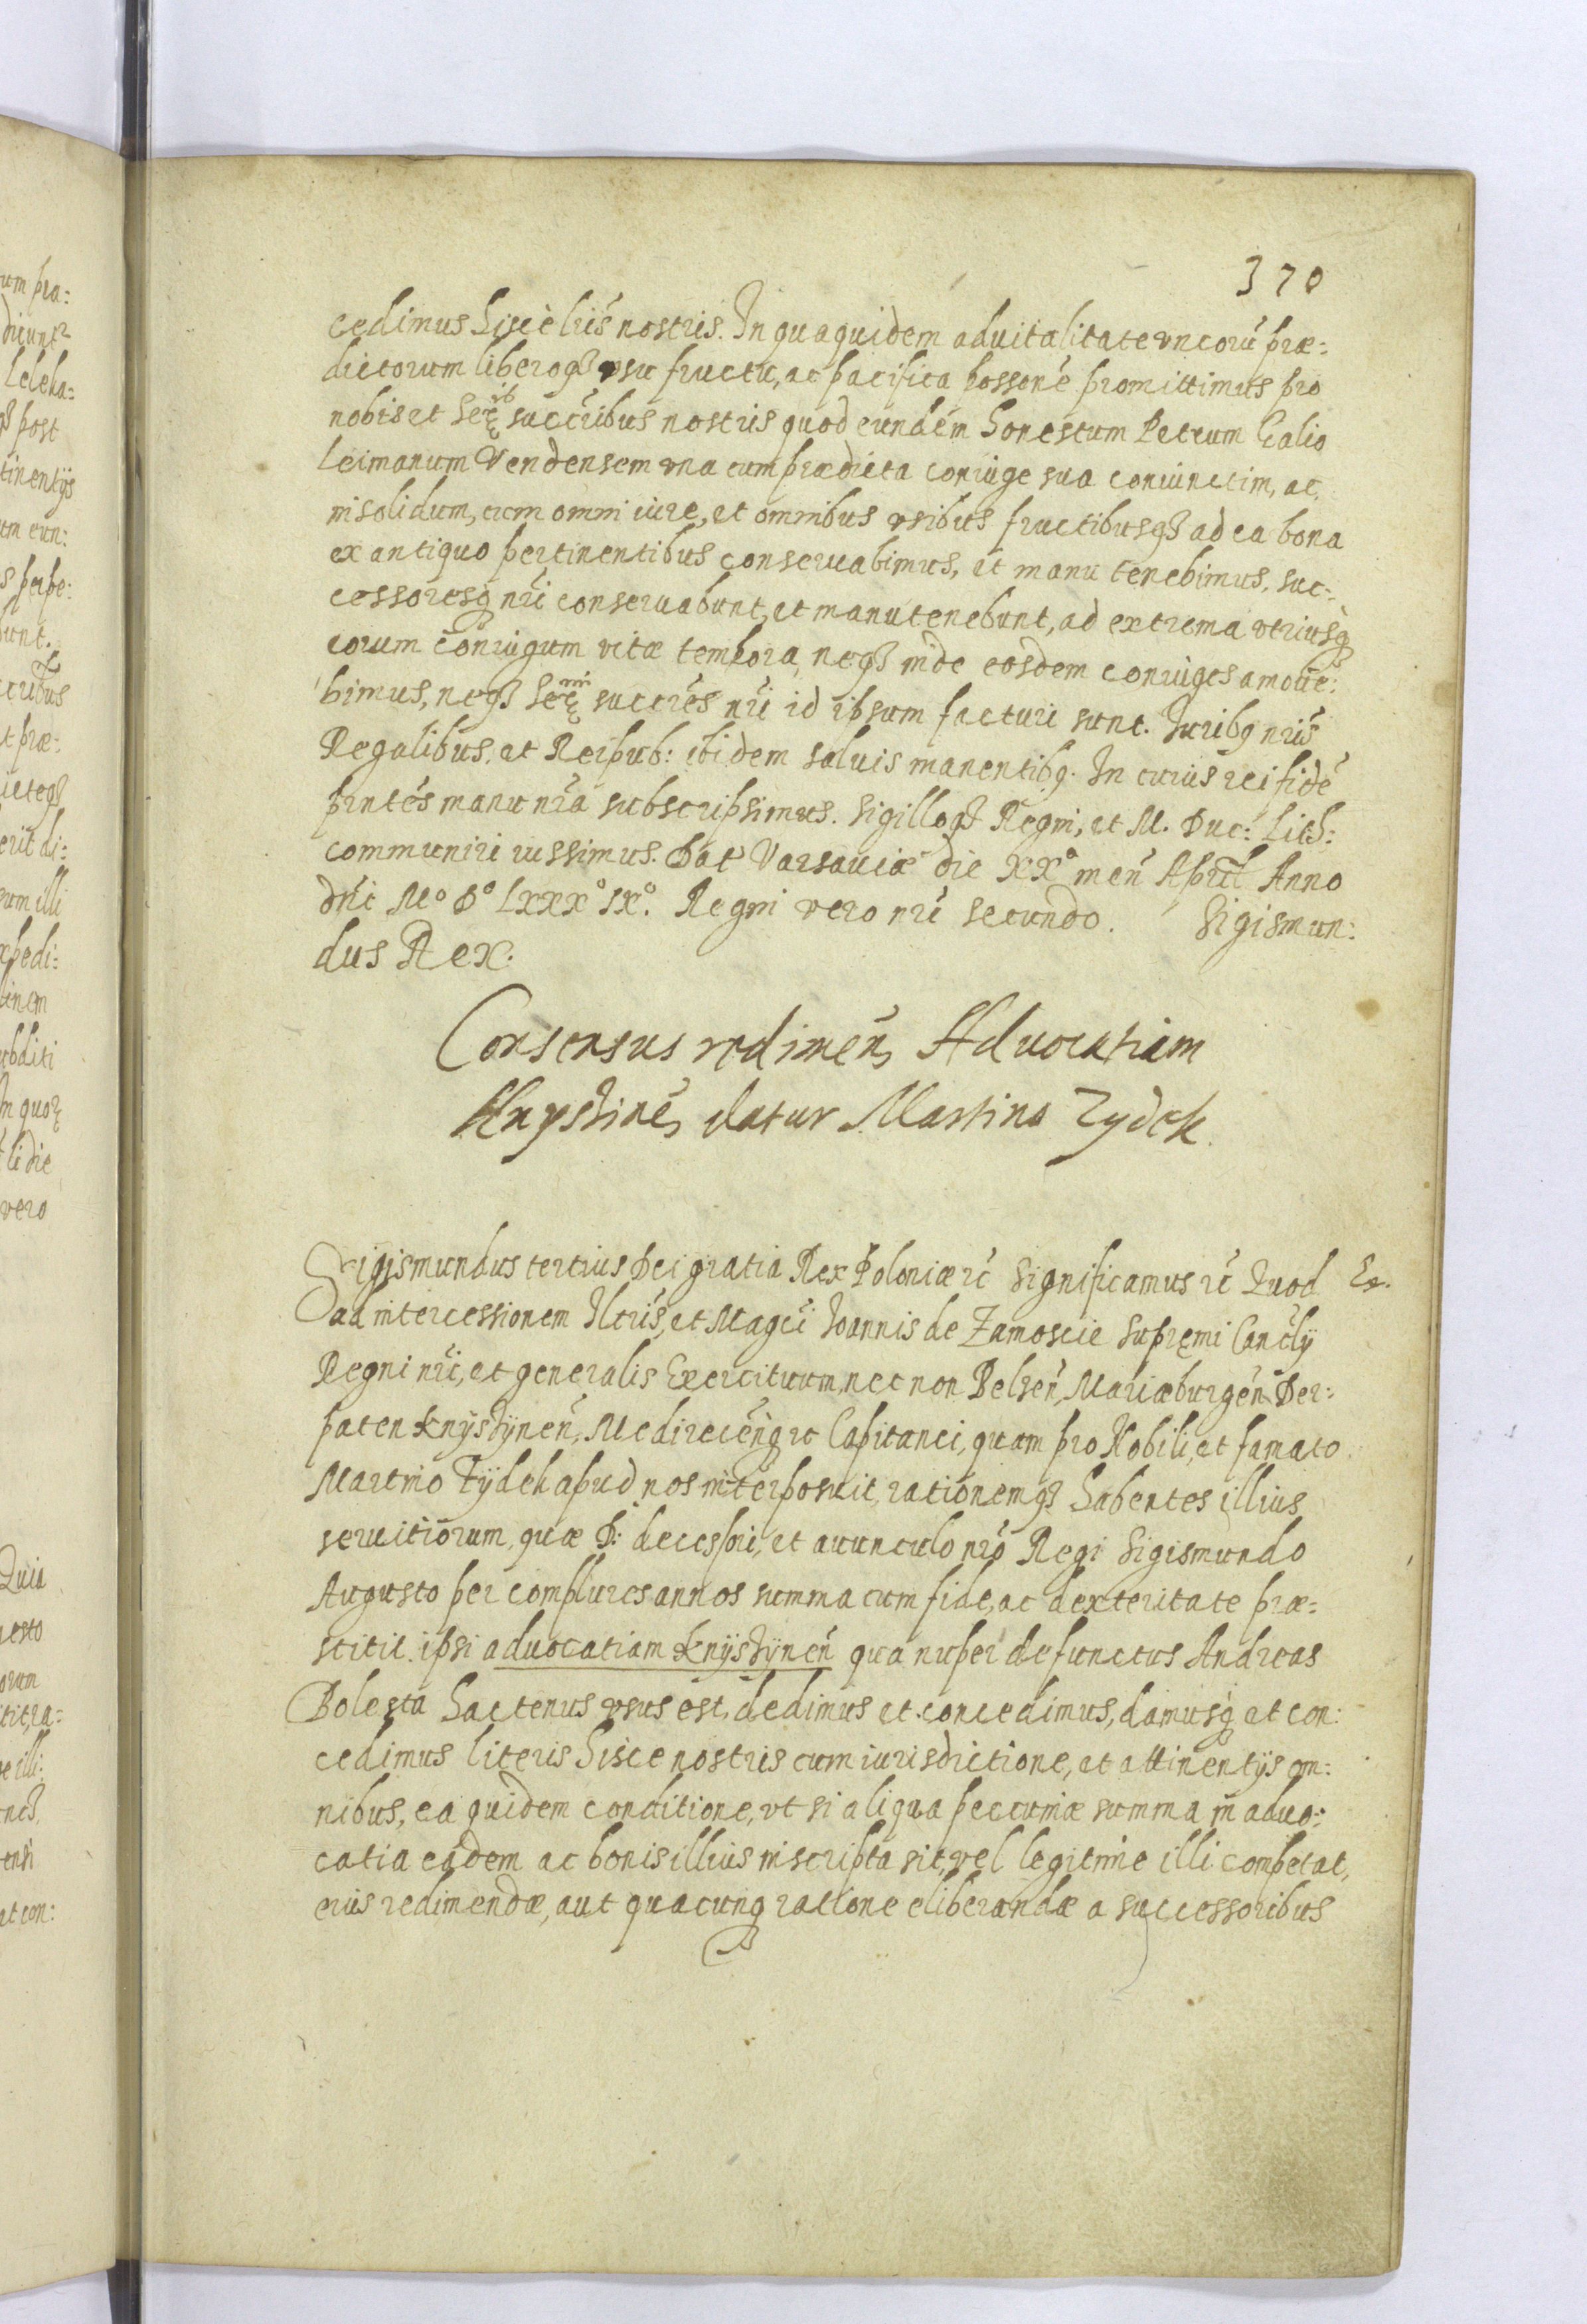 370
cedimus hisce lrīs nostris. In qua quidem aduitalitate uncorū præ:
dictorum liberoqȝ vsu fructu, ac pacifica possone promittimus pro
nobis et Se succribus nostris quod eundem honestum Petrum Calio
Leimanum Vendensem vna cum prædicta coniuge sua coniunctim, ac
insolidum, cum omni iure, et omnibus vsibus fructibusqȝ ad ea bona
ex antiquo pertinentibus conseruabimus, et manu tenebimus, suc:
cessoresqȝ nri conseruabunt, et manutenebunt, ad extrema vtriusqȝ
eorum coniugum vitæ tempora, neqȝ inde eosdem coniuges amoue:
bimus, neqȝ Se succres nri id ipsum facturi sunt. Iuribq nris
Regalibus, et Reipub: ibidem saluis manentibq. In cuius rei fidē
pntes manu nra subscripsimus. Sigilloqȝ Regni, et M. Duc: Lith:
communiri iussimus. Dat Varsauiæ die XXº men̄ April Anno
dni Mº Dº LXXXº IXº. Regni vero nri secundo. Sigismun:
dus Rex.
Consensus redimen Aduocatiam
Knyshinen datur Martino Zydek
Sigismundus tertius Dei gratia Rex Poloniæ rc̄ Significamus rc̄ Quod Ex.
ad intercessionem Illris, et Magci Ioannis de Zamoscie Supremi Canclÿ
Regni nri, et generalis Exercituum, nec non Belsen, Mariæburgen Der:
paten Knÿshÿnen, Medirecenqȝ rc Capitanei, quam pro Nobili, et famato
Martino Zÿdek apud nos interposuit, rationemqȝ habentes illius
seruitiorum, quæ D: decessori, et auunculo nro Regi Sigismundo
Augusto per complures annos summa cum fide, ac dexteritate præ:
stitit. ipsi aduocatiam Knÿshÿnen qua nuper defunctus Andreas
Bolesta hactenus vsus est, dedimus et concedimus, damusqȝ et con:
cedimus literis hisce nostris cum iurisdictione, et attinentÿs om:
nibus, ea quidem conditione, vt si aliqua pecuniæ summa in aduo:
catia eadem ac bonis illius inscripta sit, vel legitime illi competat,
eius redimendæ, aut quacunqȝ ratione eliberandæ a successoribus